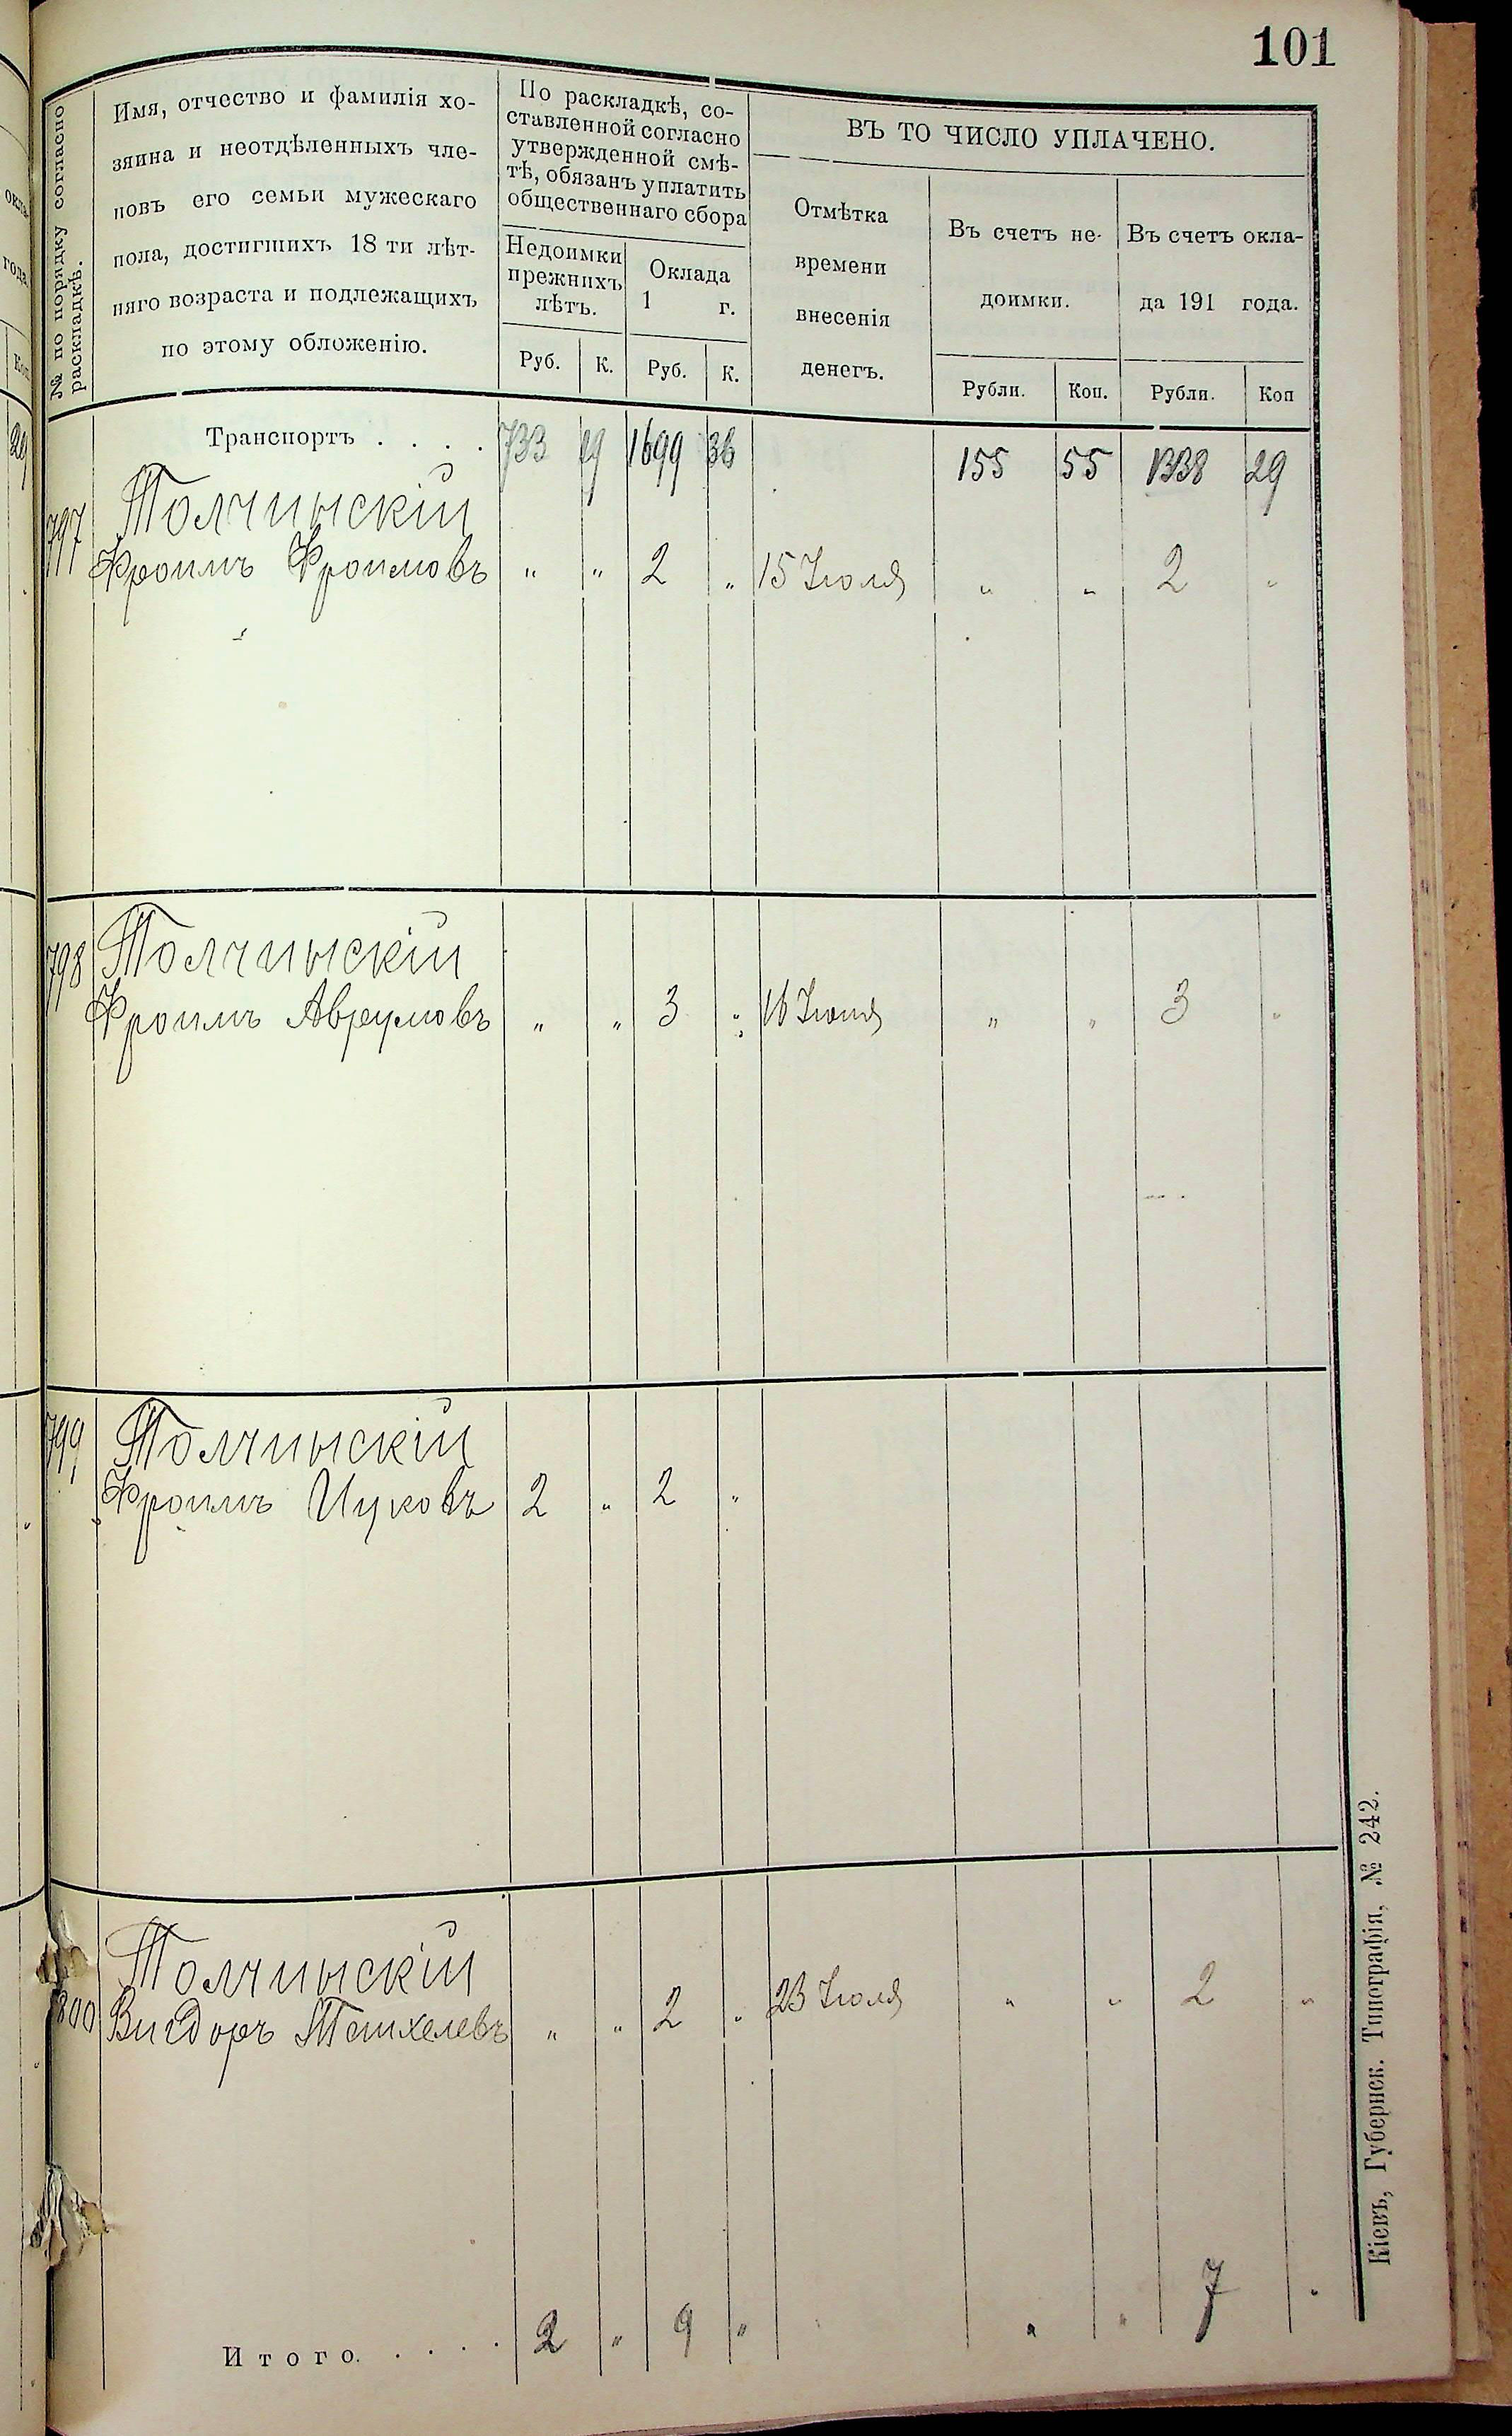 101
№ по порядку согласно
раскладкѣ.
Имя, отчество и фамилія хо-
зяина и неотдѣленныхъ чле-
новъ его семьи мужескаго
пола, достигшихъ 18 ти лѣт-
няго возраста и подлежащихъ
по этому обложенію.
По раскладкѣ, со-
ставленной согласно
утвержденной смѣ-
тѣ, обязанъ уплатить
общественнаго сбора
Недоимки
прежнихъ
лѣтъ.
Оклада
1 г.
Руб. К. Руб. К.
ВЪ ТО ЧИСЛО УПЛАЧЕНО.
Отмѣтка
времени
внесенія
денегъ.
Въ счетъ не-
доимки.
Въ счетъ окла-
да 191 года.
Рубли. Коп. Рубли. Коп
Транспортъ . . . . 733 29 1699 36 155 55 1338 29
Толчинскій
797 Фроимъ Фроимовъ " " 2 " 15 Іюля " " 2 "
Толчинскій
798 Фроимъ Аврумовъ " " 3 " 16 Іюня " " 3 "
799 Толчинскій
Фроимъ Ицковъ 2 " 2 "
Толчинскій
800 Вигдоръ Танхелевъ " " 2 " 23 Іюля " " 2 "
Итого. . . . . 2 " 9 " " " 7 "
Кіевъ, Губернск. Типографія, № 242.